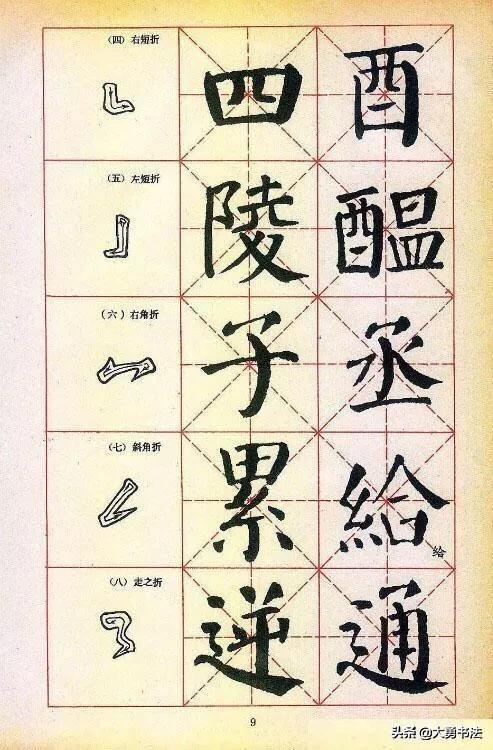 (四) 右短折 四 酉
(五) 左短折 陵 醖
(六) 右角折 子 丞
(七) 斜角折 累 給 给
(八) 走之折 逆 通
9
头条 @大勇书法